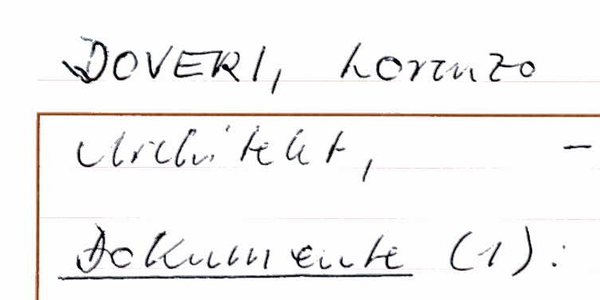 DOVERI, Lorenzo
Architekt, -
Dokumente (1):